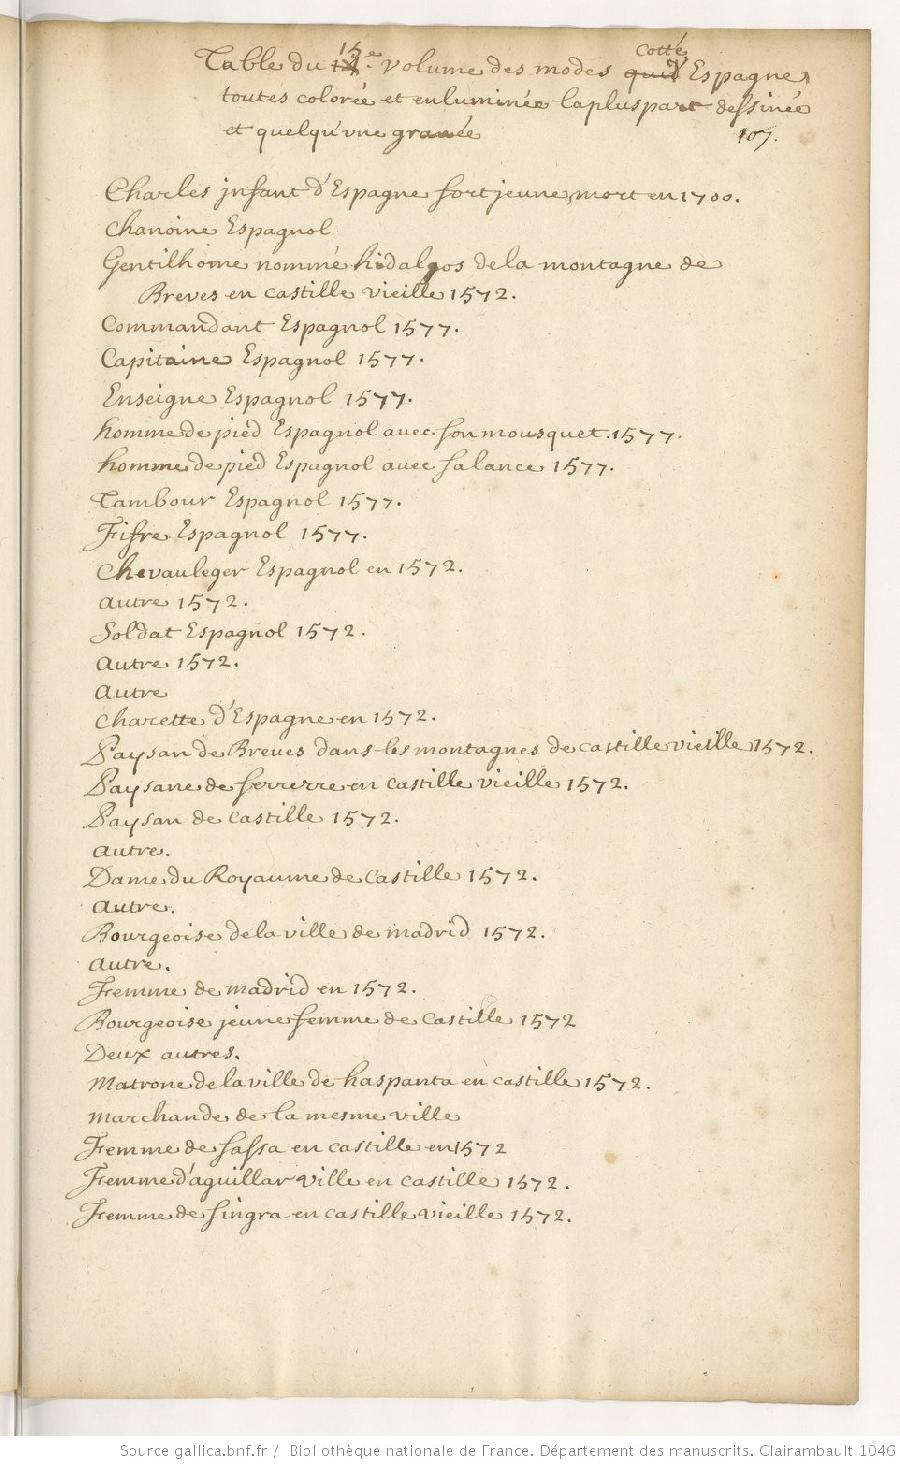 Table du 15e. volume des modes cotté d'Espagne
toutes colorée et enluminée la pluspart dessinée
et quelqu'une gravée
107.
Charles jnfant d'Espagne fort jeune, mort en 1700.
Chanoine Espagnol
Gentilhome nommé hidalgos de la montagne de
Breves en castille vieille 1572.
Commandant Espagnol 1577.
Capitaine Espagnol 1577.
Enseigne Espagnol 1577.
homme de pied Espagnol avec son mousquet. 1577.
homme de pied Espagnol avec sa lance 1577.
Tambour Espagnol 1577.
Fifre Espagnol 1577.
Chevauleger Espagnol en 1572.
autre 1572.
Soldat Espagnol 1572.
autre 1572.
autre
Charette d'Espagne en 1572.
Paysan de Breves dans les montagnes de castille vieille 1572.
Paysane de ferrerre en castille vieille 1572.
Paysan de castille 1572.
autre.
Dame du Royaume de Castille 1572.
autre.
Bourgeoise de la ville de madrid 1572.
autre.
Femme de madrid en 1572.
Bourgeoise jeune femme de castille 1572
Deux autres.
Matrone de la ville de haspanta en castille 1572.
marchande de la mesme ville
Femme de sassa en castille en 1572
Femme d'aguillar ville en castille 1572.
Femme de singra en castille vieille 1572.
Source gallica.bnf.fr / Bibliothèque nationale de France. Département des manuscrits. Clairambault 1046